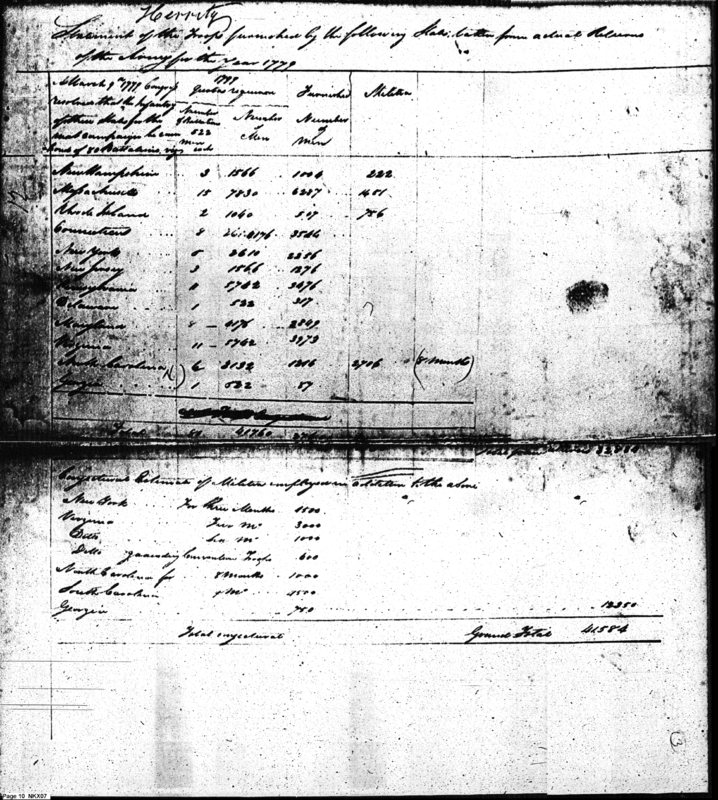 Statement of the Troops furnished by the following States, taken from actual Returns
of the Army for the Year 1779
March 9th 1779 Congress
resolved that the Infantry
of these States for the
next campaign be com
posed of 80 Battalions, viz
1779
Quotas requisition
Number
of Battalions
522
men
each
Number
of
Men
Furnished
Number
of
Men
Militia
New Hampshire 3 1566 1004 222
Massachusetts 15 7830 6287 1451
Rhode Island 2 1040 507 756
Connecticut 8 4176 3544
New York 5 2610 2256
New Jersey 3 1566 1276
Pennsylvania 11 5742 3476
Delaware 1 522 317
Maryland 8 4176 2849
Virginia 11 5742 3973
North Carolina 6 3132 1216 2706 (8 months)
Georgia 1 522 87
Total 80 41760
Conjectural Estimate of Militia employed in addition to the above
New York For three Months 1500
Virginia Two Mo 3000
Ditto Mo 1000
Ditto guarding Convention Troops 600
North Carolina for 8 Months 1000
South Carolina Mo 4500
Georgia 750 12350
Total conjectural Grand Total 41584
3
Page 10 NKX07